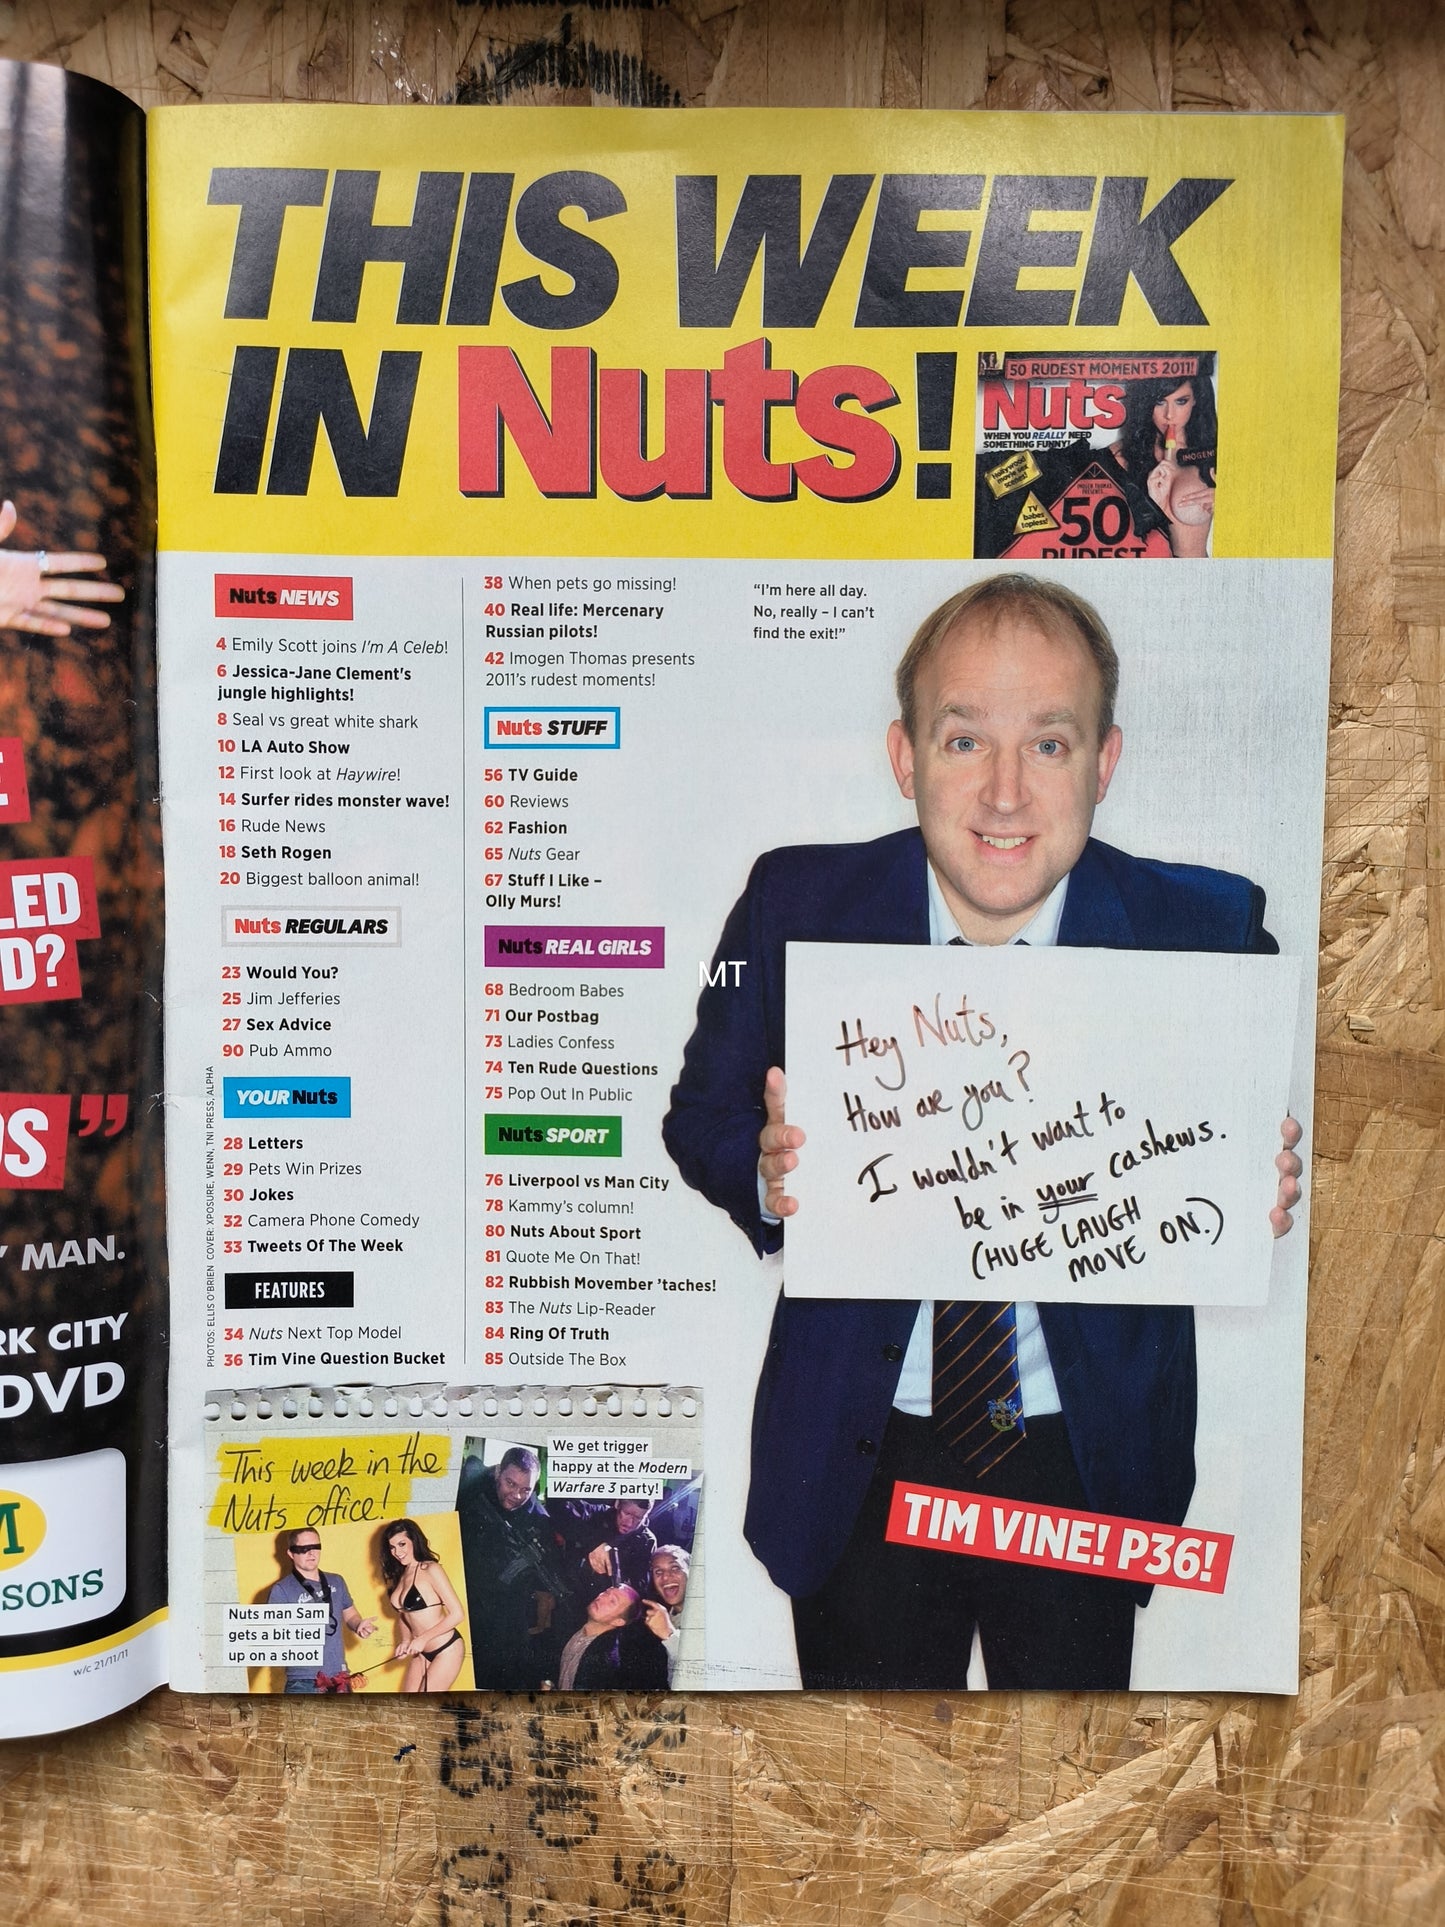 THIS WEEK
IN Nuts!
50 RUDEST MOMENTS 2011!
Nuts
WHEN YOU REALLY NEED
SOMETHING FUNNY!
Hollywood
movie sex
scenes!
TV
babes
topless!
IMOGEN THOMAS
PRESENTS...
50
RUDEST
IMOGEN
Nuts NEWS
4 Emily Scott joins I'm A Celeb!
6 Jessica-Jane Clement's
jungle highlights!
8 Seal vs great white shark
10 LA Auto Show
12 First look at Haywire!
14 Surfer rides monster wave!
16 Rude News
18 Seth Rogen
20 Biggest balloon animal!
Nuts REGULARS
23 Would You?
25 Jim Jefferies
27 Sex Advice
90 Pub Ammo
YOUR Nuts
28 Letters
29 Pets Win Prizes
30 Jokes
32 Camera Phone Comedy
33 Tweets Of The Week
FEATURES
34 Nuts Next Top Model
36 Tim Vine Question Bucket
PHOTOS: ELLIS O'BRIEN COVER: XPOSURE, WENN, TNI PRESS, ALPHA
38 When pets go missing!
40 Real life: Mercenary
Russian pilots!
42 Imogen Thomas presents
2011's rudest moments!
Nuts STUFF
56 TV Guide
60 Reviews
62 Fashion
65 Nuts Gear
67 Stuff I Like –
Olly Murs!
Nuts REAL GIRLS
68 Bedroom Babes
71 Our Postbag
73 Ladies Confess
74 Ten Rude Questions
75 Pop Out In Public
Nuts SPORT
76 Liverpool vs Man City
78 Kammy's column!
80 Nuts About Sport
81 Quote Me On That!
82 Rubbish Movember 'taches!
83 The Nuts Lip-Reader
84 Ring Of Truth
85 Outside The Box
"I'm here all day.
No, really – I can't
find the exit!"
MT
Hey Nuts,
How are you?
I wouldn't want to
be in your cashews.
(HUGE LAUGH
MOVE ON.)
TIM VINE! P36!
This week in the
Nuts office!
We get trigger
happy at the Modern
Warfare 3 party!
Nuts man Sam
gets a bit tied
up on a shoot
E
LED
D?
S"
' MAN.
RK CITY
DVD
M
SONS
w/c 21/11/11